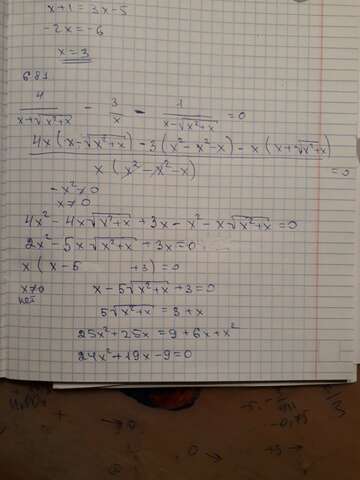 x+1 = 3x-5
-2x = -6
x = 3
681
4/(x+√(x²+x)) - 3/x - 1/(x-√(x²+x)) = 0
(4x(x-√(x²+x)) - 3(x²-x²-x) - x(x+√(x²+x)))/(x(x²-x²-x)) = 0
-x²≠0
x≠0
4x²-4x√(x²+x)+3x-x²-x√(x²+x)=0
2x²-5x√(x²+x)+3x=0
x(x-5 +3)=0
x≠0 x-5√(x²+x)+3=0
нет
5√(x²+x) = 3+x
25x²+25x = 9+6x+x²
24x²+19x-9=0